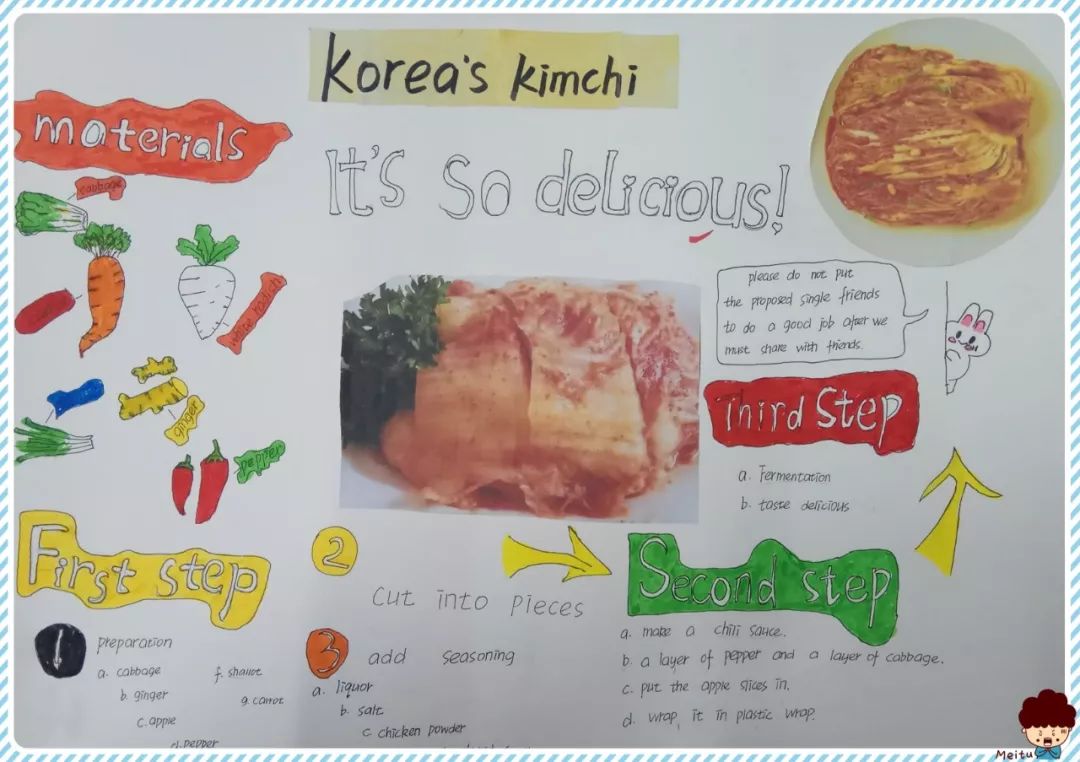 Korea's kimchi
It's So delicious!
materials
cabbage
white radich
ginger
pepper
please do not put
the proposed single friends
to do a good job after we
must share with friends.
First step
1 preparation
a. cabbage
b. ginger
c. apple
d. pepper
f. shallot
g. carrot
2
cut into pieces
3 add seasoning
a. liquor
b. salt
c chicken powder
Second step
a. make a chili sauce.
b. a layer of pepper and a layer of cabbage.
c. put the apple slices in.
d. wrap it in plastic wrap.
Third Step
a. Fermentation
b. taste delicious
Meitu